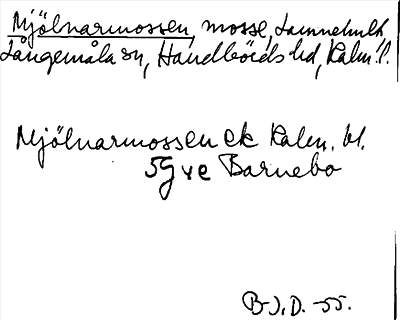 Mjölnarmossen, mosse, Lannehult
Långemåla sn, Handbörds hd, Kalm. l.
Mjölnarmossen ek Kalm. bl.
5g ve Barnebo
B-J. D. -55.